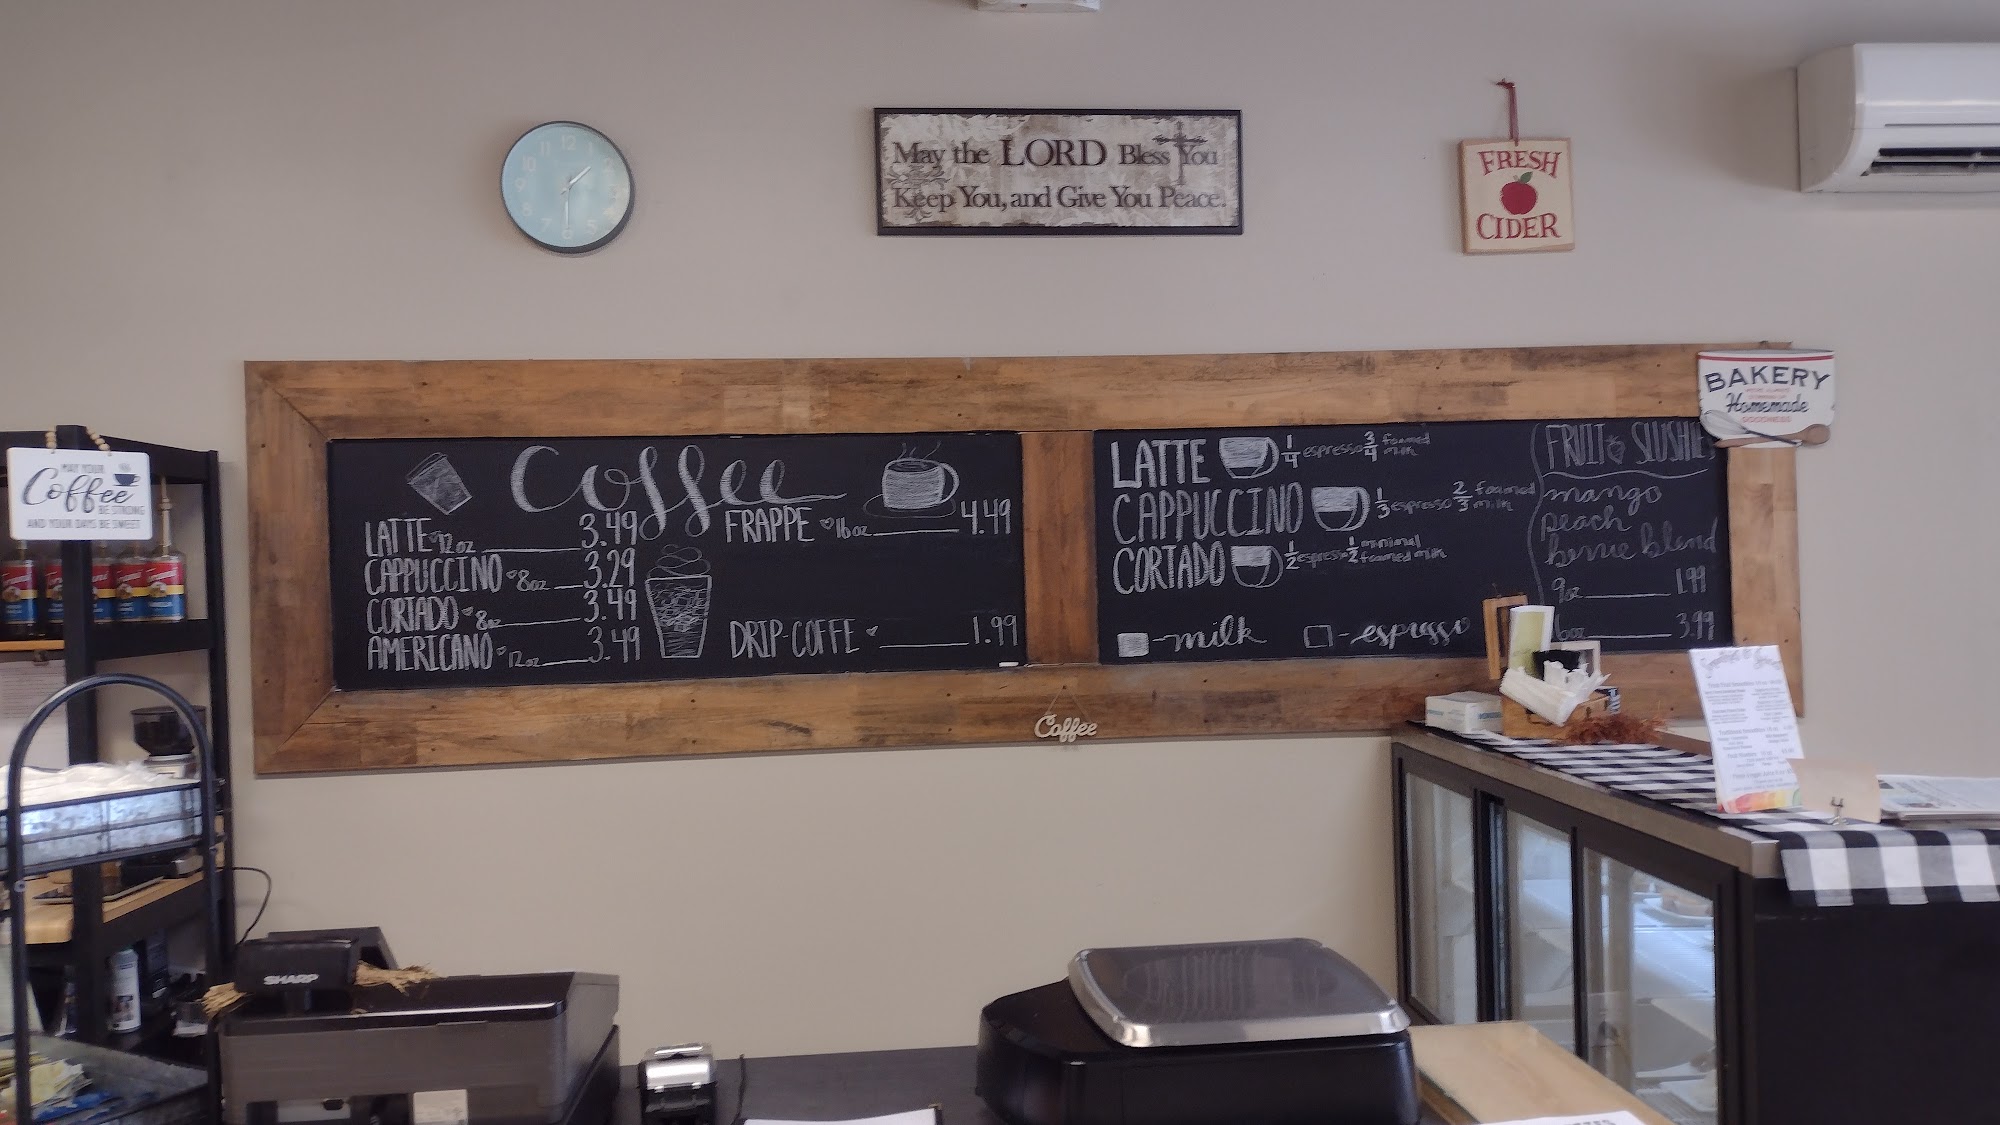 12
11
1
10
2
9
3
8
4
7
5
6
May the LORD Bless You
Keep You, and Give You Peace.
FRESH
CIDER
BAKERY
Homemade
GOODNESS
MAY YOUR
Coffee
BE STRONG
AND YOUR DAYS BE SWEET
Coffee
LATTE 12oz 3.49
CAPPUCCINO 8oz 3.29
CORTADO 8oz 3.49
AMERICANO 12oz 3.49
FRAPPE 16oz 4.49
DRIP-COFFE 1.99
LATTE 1/4 espresso 3/4 foamed milk
CAPPUCCINO 1/3 espresso 2/3 foamed milk
CORTADO 1/2 espresso 1/2 minimal foamed milk
-milk -espresso
FRUIT SLUSHIE
mango
peach
berrie blend
9oz 1.99
3.99
Coffee
SHARP